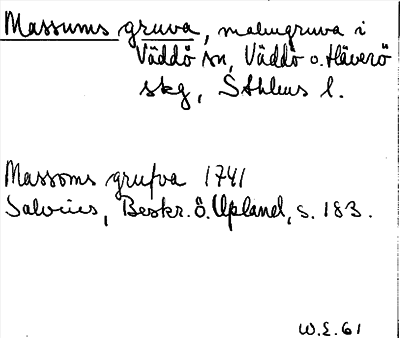 Massums gruva, malmgruva i
Väddö sn, Väddö o. Häverö
skg, Sthlms l.
Massoms grufva 1741
Salvius, Beskr. ö. Upland, s. 183.
W.E. 61